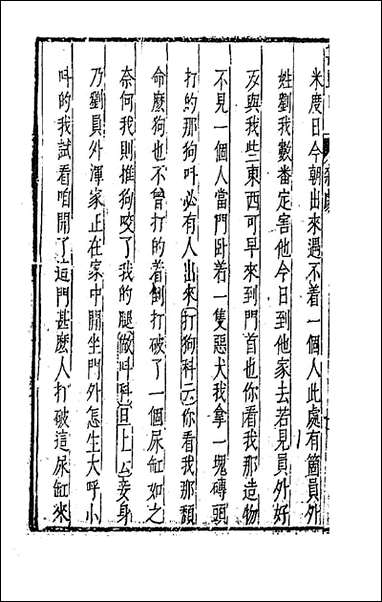 米度日今朝出來遇不着一個人此處有箇員外
姓劉我數番定害他今日到他家去若見員外好
歹與我些東西可早來到門首也你看我那造物
不見一個人當門臥着一隻惡犬我拿一塊磚頭
打的那狗叫必有人出來打狗科云你看我那頹
命麽狗也不曾打的着倒打破了一個尿缸如之
奈何我則推狗咬了我的腿做叫科旦上云妾身
乃劉員外渾家正在家中閒坐門外怎生大呼小
叫的我試看咱開了這門甚麽人打破這尿缸來